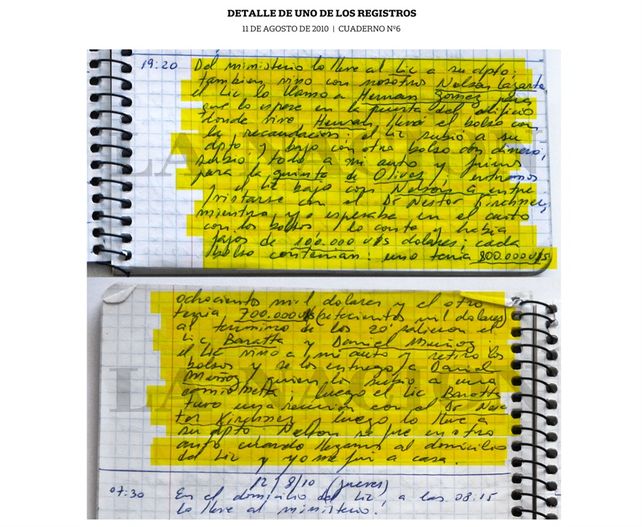 DETALLE DE UNO DE LOS REGISTROS
11 DE AGOSTO DE 2010 | CUADERNO Nº6
19:20 Del ministerio lo lleve al Lic a su dpto;
tambien vino con nosotros Nelson Lazarte
el Lic lo llamo a Hernan Gomez para
que lo espere en la puerta del edificio
donde vive Hernan llevó el bolso con
la recaudacion; el Lic subio a su
dpto y bajo con otro bolso de dinero,
subio todo a mi auto y fuimos
para la quinta de Olivos y entramos
y el Lic bajo con Nelson a entre
vistarse con el Dr Nestor Kirchner,
mientras yo esperaba en el auto
con los bolsos, lo conte y habia
fajos de 100.000 u$s dolares; cada
bolso contenian: uno tenia 800.000 u$s
ochociento mil dolares y el otro
tenia 700.000 u$s (setecientos mil dolares)
al termino de los 20' salieron el
Lic Baratta y Daniel Muñoz
el Lic vino a mi auto y retiro los
bolsos y se los entrego a Daniel
Muñoz, quien los subio a una
camioneta; luego el Lic Baratta
tuvo una reunion con el Dr Nes
tor Kirchner y luego lo lleve a
su dpto. Nelson se fue en otro
auto cuando llegamos al domicilio
del Lic y yo me fui a casa.
12/8/10 (jueves)
07:30 En el domicilio del Lic, a las 08:15
lo lleve al ministerio.
LA NACION
LA NACION